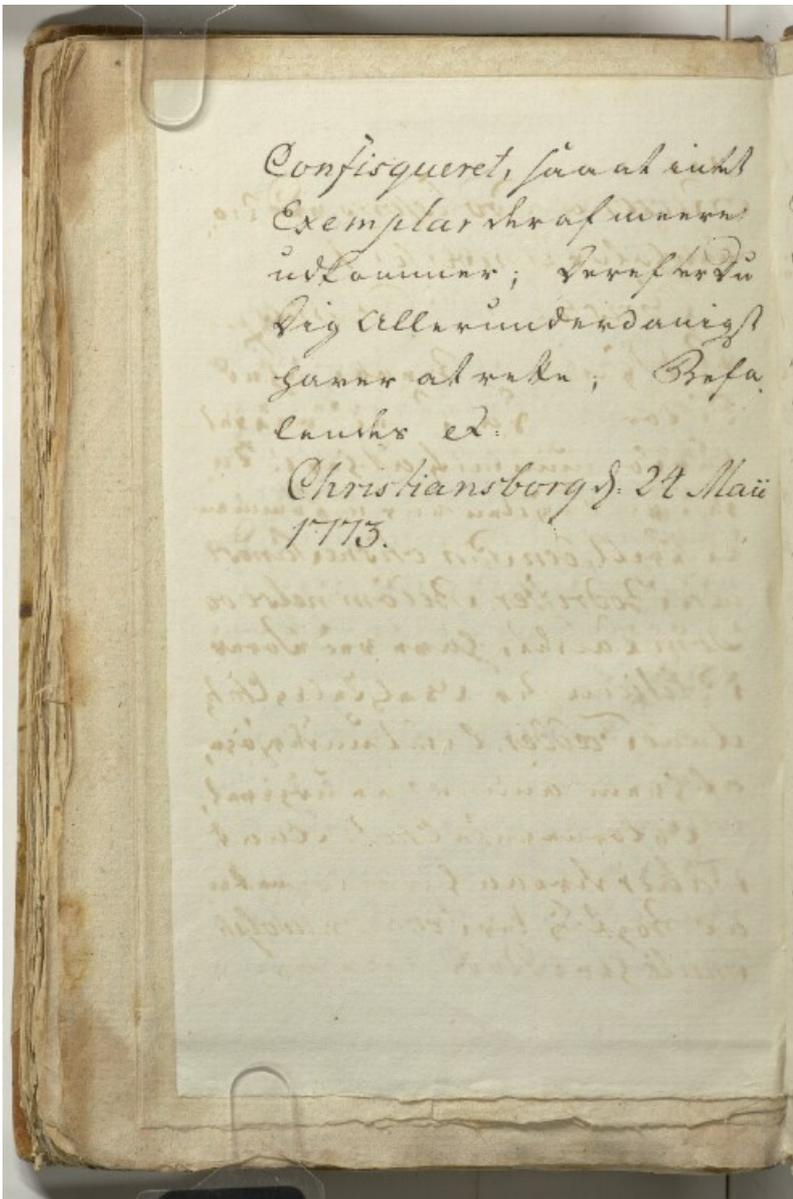 Confisqueret, saa at intet
Exemplar deraf meere
udkommer; Derefter Du
Dig Allerunderdanigst
haver at rette; Befa-
lendes etc:
Christiansborg d: 24 Maii
1773.